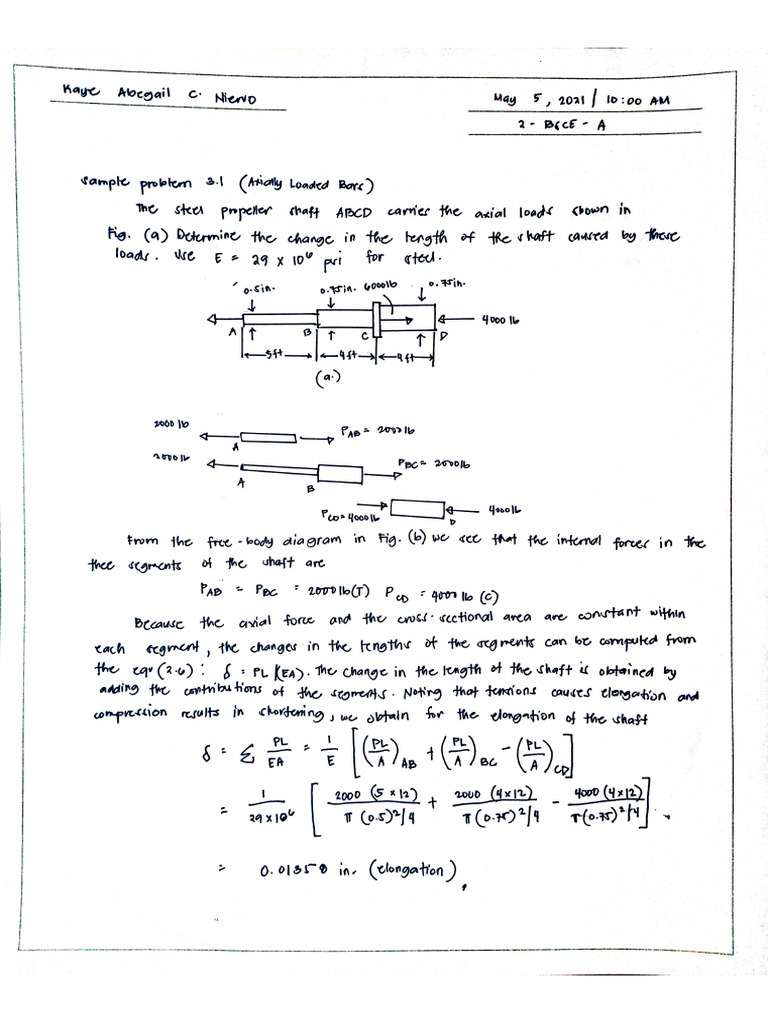 Kaye Abegail C. Niervo
May 5, 2021 / 10:00 AM
2 - BSCE - A
Sample problem 3.1 (Axially Loaded Bars)
The steel propeller shaft ABCD carries the axial loads shown in
Fig. (a) Determine the change in the length of the shaft caused by these
loads. Use E = 29 x 10⁶ psi for steel.
0.5in. 0.75in. 6000lb 0.75in.
4000 lb
A B C D
5ft 4ft 4ft
(a.)
2000 lb P_AB = 2000 lb
A
2000lb P_BC = 2000lb
A B
P_CD = 4000lb D 4000lb
From the free-body diagram in Fig. (b) we see that the internal forces in the
thee segments of the shaft are
P_AB = P_BC = 2000 lb(T) P_CD = 4000 lb (C)
Because the axial force and the cross-sectional area are constant within
each segment, the changes in the lengths of the segments can be computed from
the eqv (2.6): δ = PL/(EA). The change in the length of the shaft is obtained by
adding the contributions of the segments. Noting that tensions causes elongation and
compression results in shortening, we obtain for the elongation of the shaft
δ = Σ PL/EA = 1/E [(PL/A)_AB + (PL/A)_BC - (PL/A)_CD]
= 1/29x10⁶ [2000 (5x12)/π(0.5)²/4 + 2000 (4x12)/π(0.75)²/4 - 4000 (4x12)/π(0.75)²/4]
= 0.01358 in. (elongation)